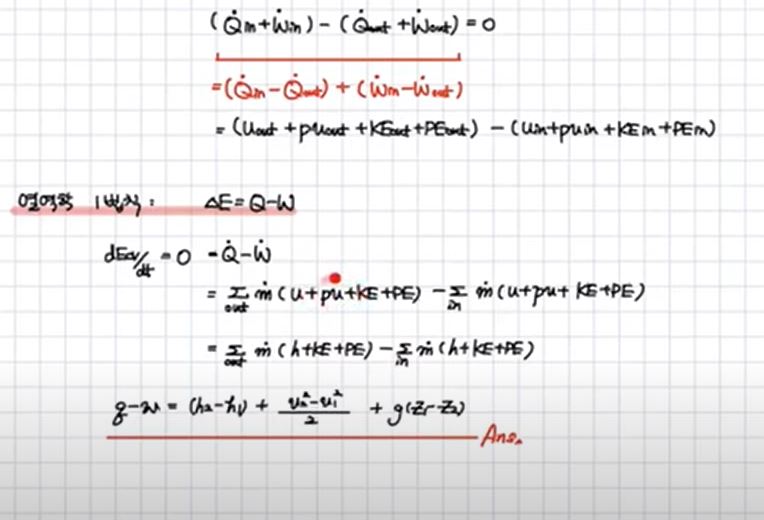 (Q̇in+Ẇin) - (Q̇out +Ẇout) = 0
= (Q̇in-Q̇out) + (Ẇin-Ẇout)
= (Uout + pυout + KEout+PEout) - (Uin+pυin + KEin + PEin)
열역학 1법칙 : ΔE = Q-W
dEcv/dt = 0 = Q̇-Ẇ
= Σout ṁ (u+pυ+KE+PE) - Σin ṁ (u+pυ+ KE+PE)
= Σout ṁ (h+KE+PE) - Σin ṁ (h+KE+PE)
q-w = (h2-h1) + υ2²-υ1²/2 + g(Z1-Z2)
Ans.